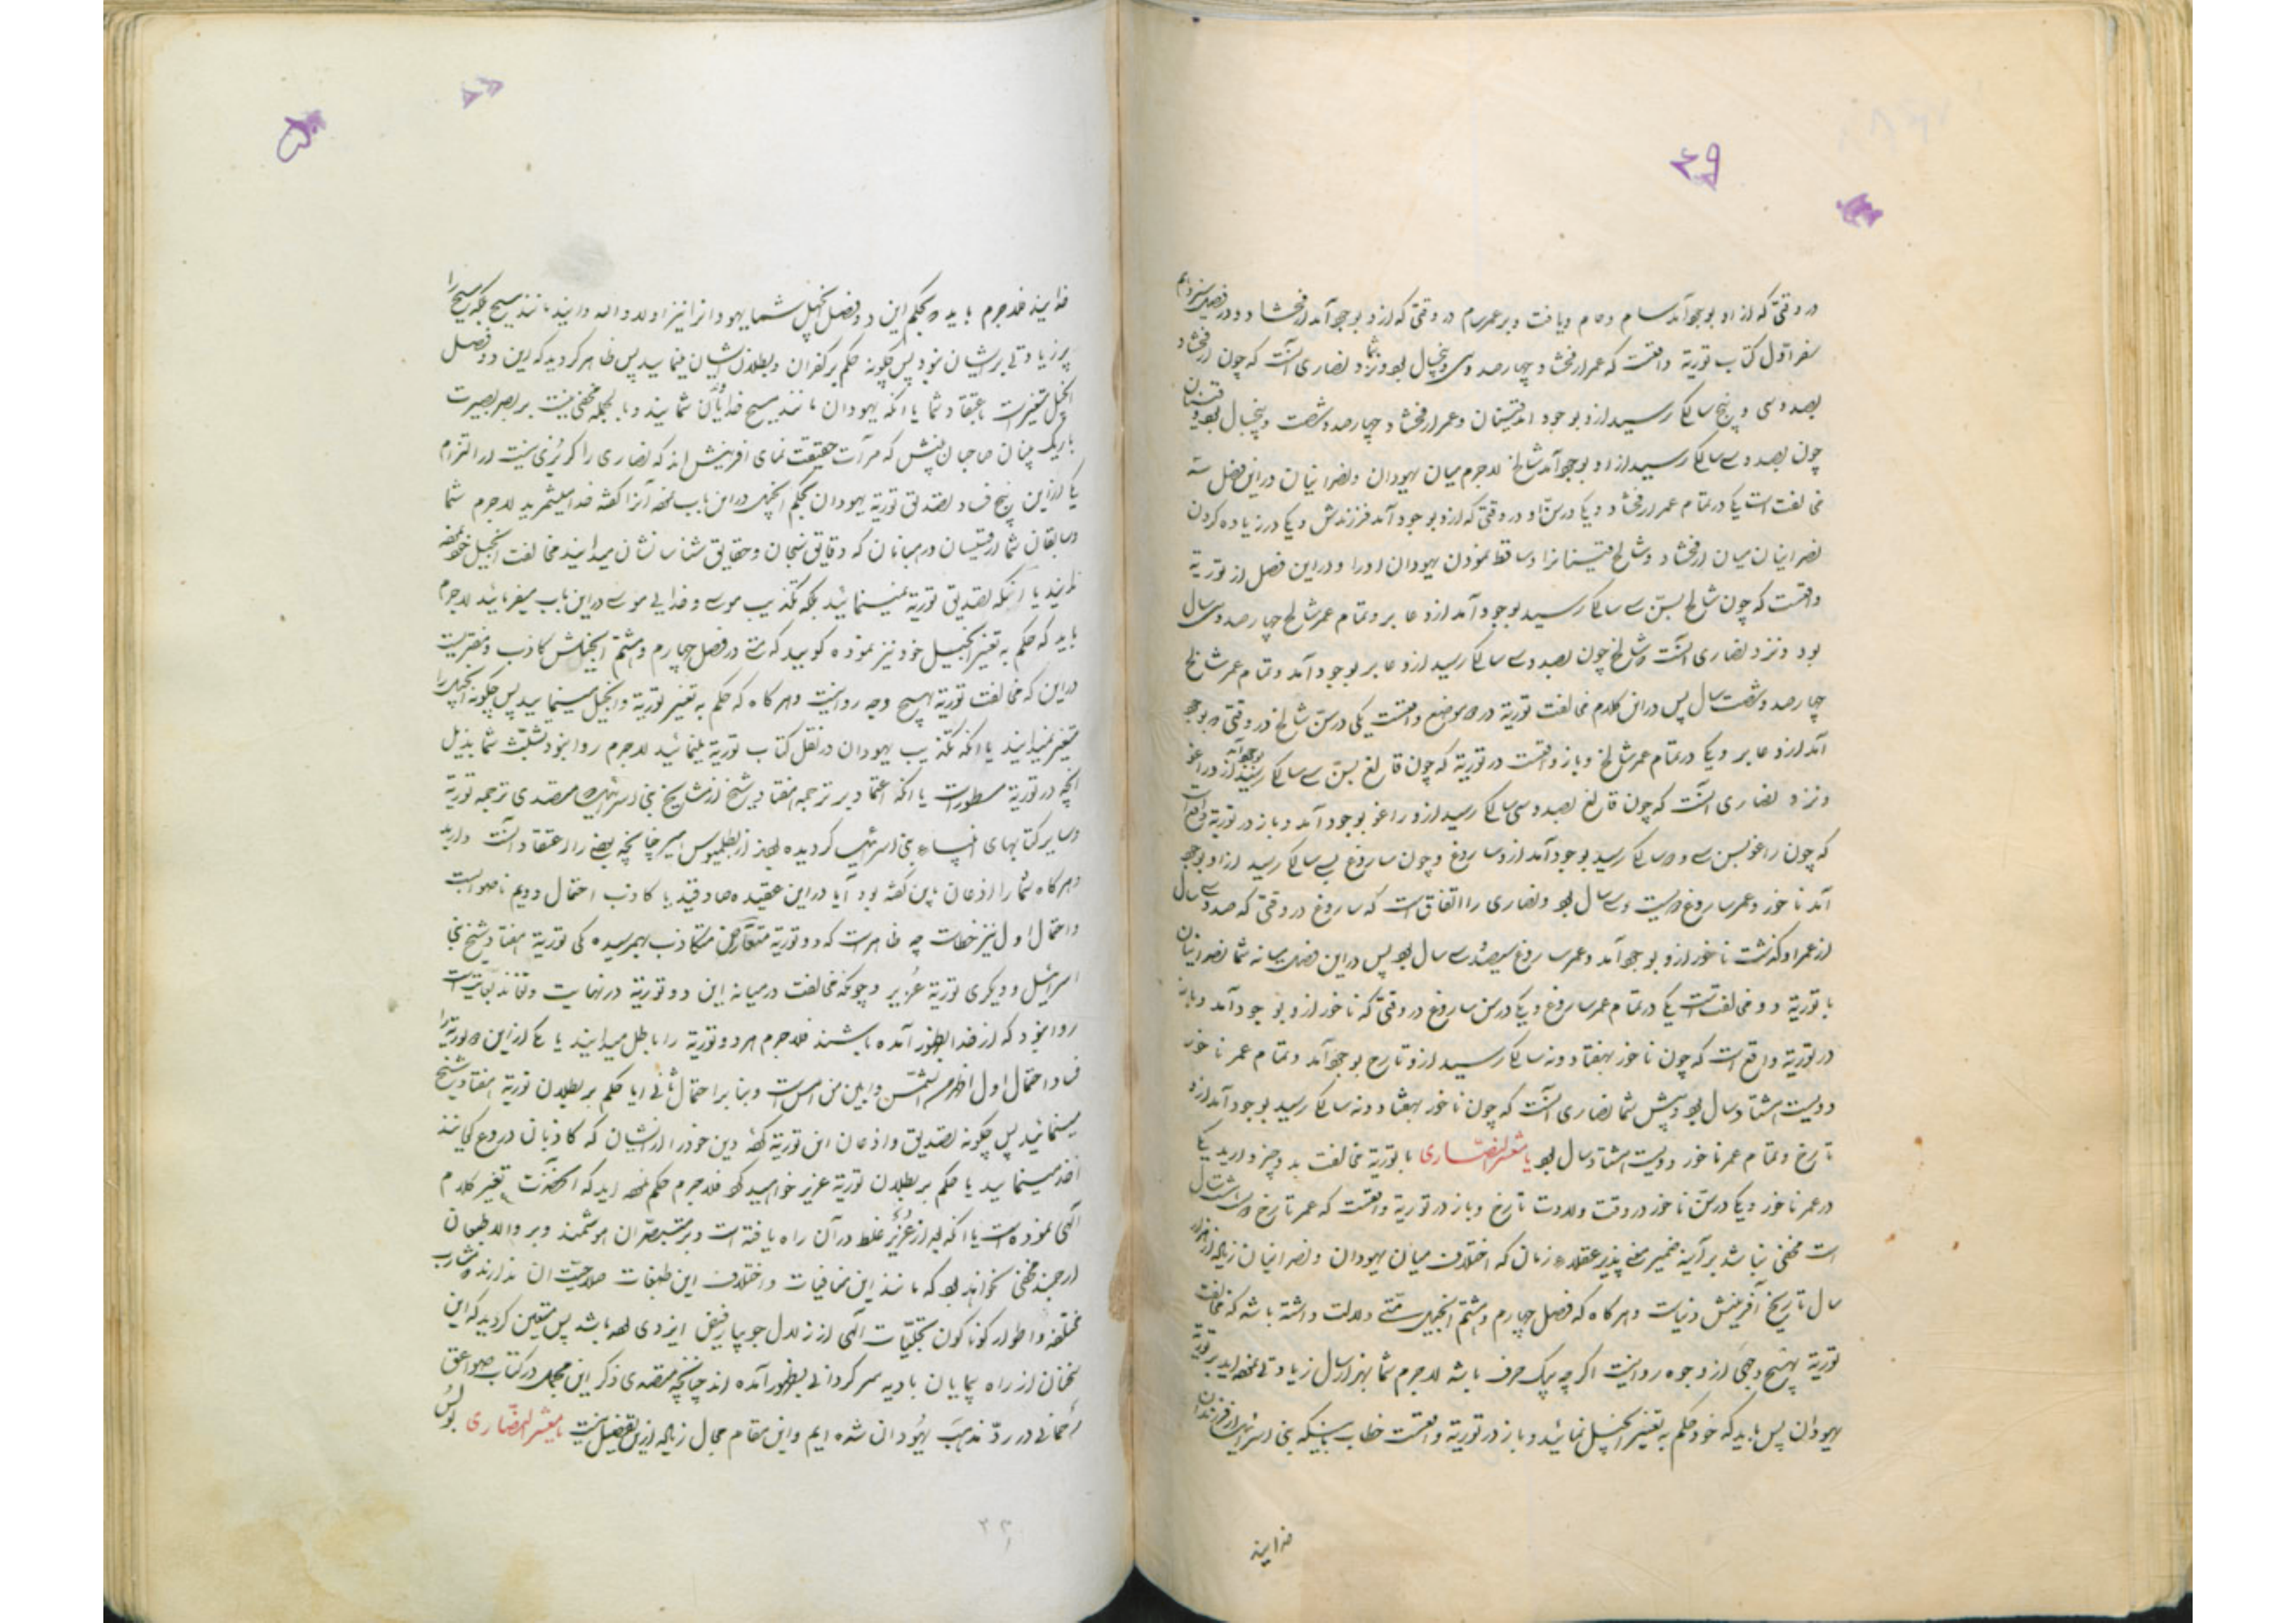 ۴۹
در وقتی که از او بوجود آمد سام و حام و یافث و بر عمر سام در وقتی که ازو بوجود آمد ارفخشاد و در فصل سیزدهم
سفر اوّل کتاب توریة واقعست که عمر ارفخشاد چهارصد و سی و پنجسال بود و نزد شما و نصاری آنست که چون ارفخشاد
بصد و سی و پنج سالگی رسید ازو بوجود آمد قینان و عمر ارفخشاد چهارصد و شصت و پنجسال بود و قینان
چون بصد و سی سالگی رسید از او بوجود آمد شالخ لاجرم میان یهودان و نصرانیان در این فصل سه
مخالفت است یکی در تمام عمر ارفخشاد و یکی در سنّ او در وقتی که ازو بوجود آمد فرزندش و یکی در زیاده کردن
نصرانیان میان ارفخشاد و شالخ قینانرا و ساقط نمودن یهودان اورا و در این فصل از توریة
واقعست که چون شالخ بسنّ سی سالگی رسید بوجود آمد ازو عابر و تمام عمر شالخ چهارصد و سی سال
بود و نزد نصاری آنست که شالخ چون بصد و سی سالگی رسید ازو عابر بوجود آمد و تمام عمر شالخ
چهارصد و شصت سال پس در این کلام مخالفت توریة در دو موضع واقعست یکی در سنّ شالخ در وقتی که بوجود
آمد ازو عابر و یکی در تمام عمر شالخ و باز واقعست در توریة که چون فالغ بسنّ سی سالگی رسید بوجود آمد ازو راغو
و نزد نصاری آنست که چون فالغ بصد و سی سالگی رسید ازو راغو بوجود آمد و باز در توریة واقع است
که چون راغو بسن سی و دو سالگی رسید بوجود آمد ازو ساروغ و چون ساروغ بسی سالگی رسید ازاو بوجود
آمد ناخور و عمر ساروغ دویست و سی سال بود و نصاری را اتفاق است که ساروغ در وقتی که صد و سی سال
از عمر او گذشت ناخور ازو بوجود آمد و عمر ساروغ سیصد و سی سال بود پس در این فصل میانه شما نصرانیان
با توریة دو مخالفتست یکی در تمام عمر ساروغ و یکی در سن ساروغ در وقتی که ناخور ازو بوجود آمد و باز
در توریة واقع است که چون ناخور بهفتاد و نه سالگی رسید ازو تارح بوجود آمد و تمام عمر ناخور
دویست هشتاد سال بود و پیش شما نصاری آنست که چون ناخور بهفتاد و نه سالگی رسید بوجود آمد ازو
تارخ و تمام عمر ناخور دویست هشتاد سال بود یا معشر النصاری با توریة مخالفت بدو چیز دارید یکی
در عمر ناخور و یکی در سنّ ناخور در وقت ولادت تارخ و باز در توریة واقعست که عمر تارخ
است مخفی نباشد بر آینه ضمیر معنی پذیر عقلاء زمان که اختلاف میان یهودان و نصرانیان زیاده از هزار
سال تاریخ آفرینش دنیاست و هرگاه که فصل چهارم و هشتم انجیل متّی دلالت داشته باشد که مخالفت
توریة بهیچ وجهی از وجوه روا نیست اگرچه بیک حرف باشد لاجرم شما بهزار سال زیادتی نموده‌اید بر توریة
یهودان پس باید که خود حکم به تغییر انجیل نمائید و باز در توریة واقعست خطاب باینکه بنی اسرائیل از فرزندان
خدایند
خدایند فلاجرم باید که بحکم این دو فصل انجیل شما یهودانرا نیز اولاد واله دانید مانند مسیح بلکه مسیح را
پر زیادتی بر ایشان نبود پس چگونه حکم بر کفران و بطلان ایشان مینمایید پس ظاهر گردید که این دو فصل
انجیل متغیر است باعتقاد شما یا آنکه یهودان مانند مسیح خدایان شمایند و بالجمله مخفی نیست بر بصر بصیرت
باریک بینان صاحبان بینش که مرآت حقیقت نمای آفرینش اند که نصاری را گریزی نیست در التزام
یکی ازاین پنج فساد تصدیق توریة یهودان بحکم انجیل در این باب نموده آنرا گفته خدا میشمرید لاجرم شما
و سابقان شما از قسیسان و رهبانان که دقایق سنجان و حقایق شناسانشان میدانید مخالفت انجیل خود نموده
اند یا آنکه تصدیق توریة نمینمائید بلکه تکذیب موسی و خدایی موسی در این باب میفرمائید لاجرم
باید که حکم به تغیر انجیل خود نیز نموده گویید که متی در فصل چهارم و هشتم انجیلش کاذب و مفتریست
در این که مخالفت توریة بهیچ وجه روا نیست و هرگاه که حکم به تغیر توریة و انجیل مینمایید پس چگونه انجیل را
متغیر نمیدانید یا آنکه تکذیب یهودان در نقل کتاب توریة مینمائید لاجرم روا نبود تشبّث شما بذیل
آنچه در توریة مسطور است یا آنکه اعتماد بر ترجمه هفتاد شیخ از مشایخ بنی اسرائیل که متصدی ترجمه توریة
و سایر کتابهای انبیاء بنی اسرائیل گردیده بودند از بطلمیوس امیر چنانچه بعضی را اعتقاد آنست دارید
و هرگاه شما را اذعان باین گفته بود آیا در این عقیده صادقید یا کاذب احتمال دویم ناصوابست
و احتمال اول نیز خطاست چه ظاهر است که دو توریة متعارض متکاذب بهمرسیده یکی توریة هفتاد شیخ بنی
اسرائیل و دیگری توریة عُزیر و چونکه مخالفت درمیانه این دو توریة در نهایت
روا نبود که از خدا بظهور آمده باشند فلاجرم هر دو توریة را باطل میدانید یا یکی از این دو توریة را
فساد احتمال اول اظهر من الشمس و ابین من امس است و بنا بر احتمال ثانی آیا حکم بر بطلان توریة هفتاد شیخ
مینمائید پس چگونه تصدیق و اذعان این توریة کرده دین خود را از ایشان که کاذبان دروغ گویانند
اخذ مینمایید یا حکم بر بطلان توریة عزیر خواهید کرد فلاجرم حکم نموده اید که آنحضرت تغیر کلام
الهی نموده است یا آنکه بعد از عُزیر غلط در آن راه یافته است و بر متبصّران هوشمند و بر والاطبعان
ارجمند مخفی نخواهد بود که مانند این منافیات و اختلاف این طبقات صلاحیّت آن ندارند که مشارب
مختلفه و اطوار گوناگون تجلیّات الهی از زلال جویبار فیض ایزدی بوده باشد پس متعین گردید که این
سخنان از راه پیمایان بادیه سرگردانی بظهور آمده اند چنانچه متصدی ذکر این مجمل در کتاب صواعق
رحمانی در ردّ مذهب یهودان شده ایم و این مقام مجال زیاده ازین تفصیل نیست یا معشر النصاری بولس